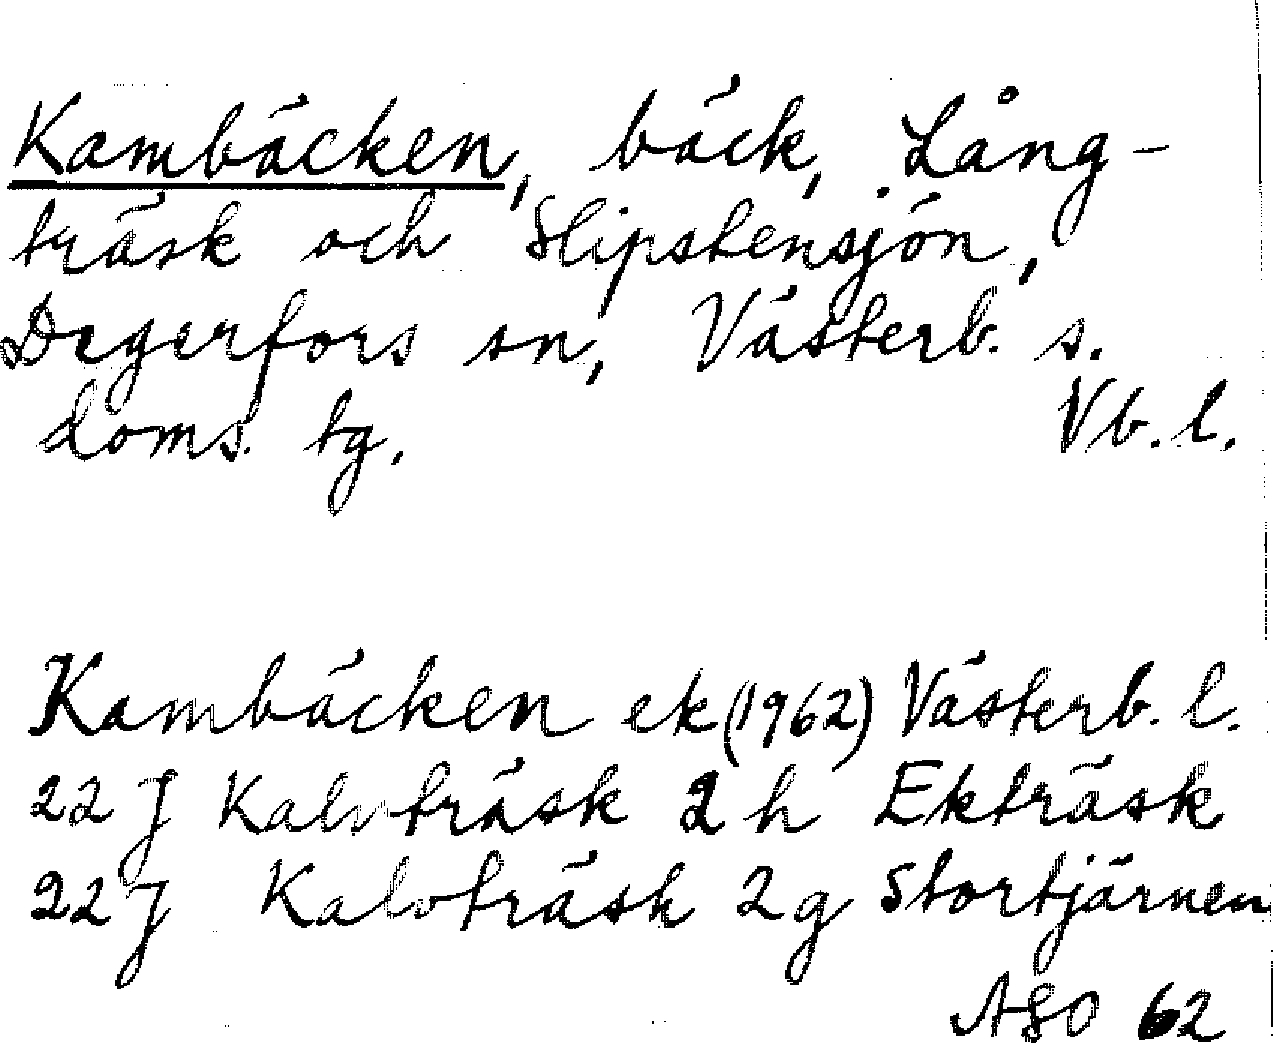 Kambäcken, bäck, Lång-
träsk och Slipstensjön,
Degerfors sn, Västerb. s.
doms. tg. Vb. l.
Kambäcken ek (1962) Västerb. l.
22 J Kalvträsk 2 h Ekträsk
22 J Kalvträsk 2 g Stortjärnen
ASO 62